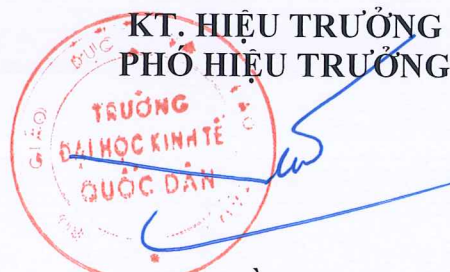 KT. HIỆU TRƯỞNG
PHÓ HIỆU TRƯỞNG
GIÁO DỤC
TRƯỜNG
ĐẠI HỌC KINH TẾ
QUỐC DÂN